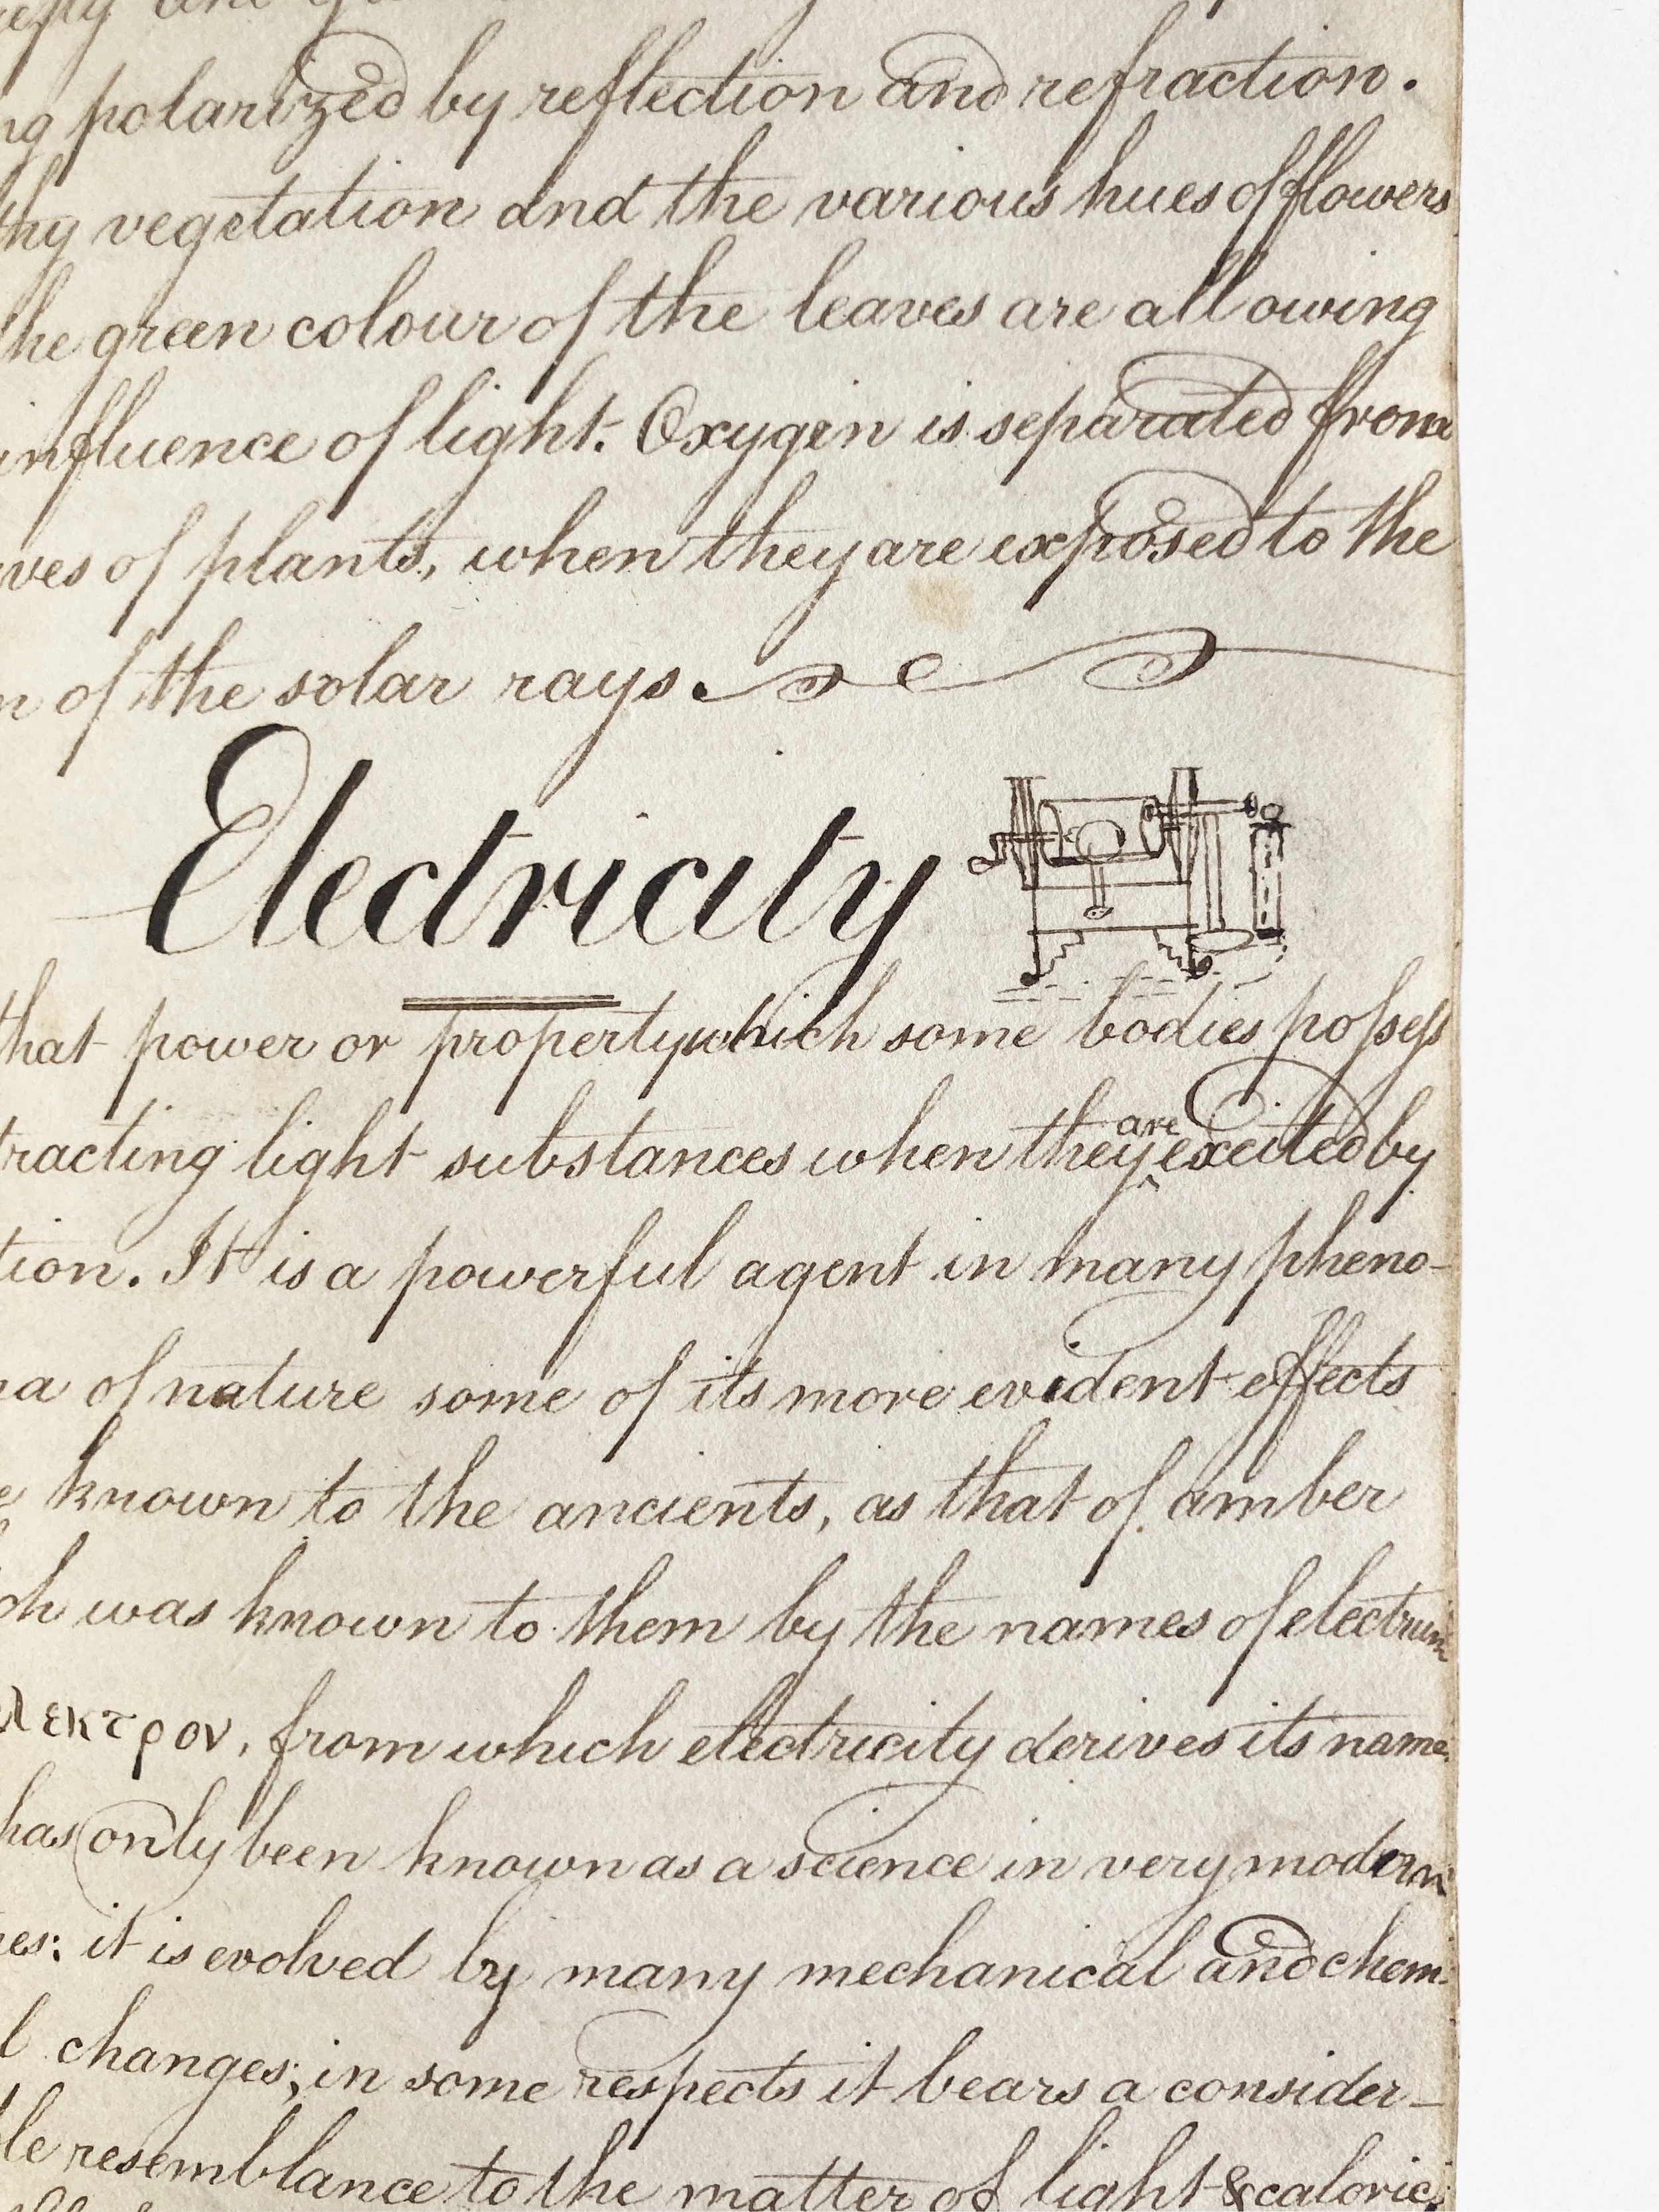 polarized by reflection and refraction.
vegetation and the various hues of flowers
he green colour of the leaves are all owing
influence of light. Oxygen is separated from
ves of plants, when they are exposed to the
n of the solar rays.
Electricity
that power or property which some bodies poſseſs
are
tracting light substances when they ‸ excited by
tion. It is a powerful agent in many pheno-
na of nature some of its more evident effects
known to the ancients, as that of amber
ch was known to them by the names of electrum
λεκτρον, from which electricity derives its name.
has only been known as a science in very modern
es: it is evolved by many mechanical and chem-
l changes; in some respects it bears a consider-
le resemblance to the matter of light & caloric,